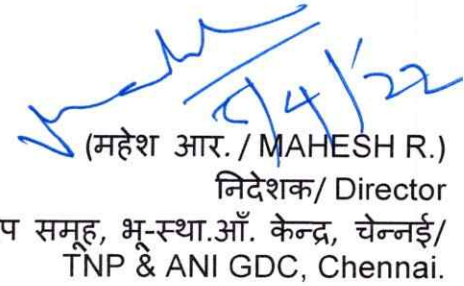 5/4/22
(महेश आर. / MAHESH R.)
निदेशक/ Director
समूह, भू-स्था.आँ. केन्द्र, चेन्नई/
TNP & ANI GDC, Chennai.